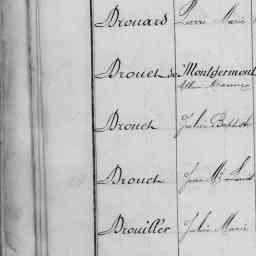 Drouard Pierre Marie
Drouet de Montgermont
Drouet Julien Baptiste
Drouet Jean M.
Drouillet Julien Marie